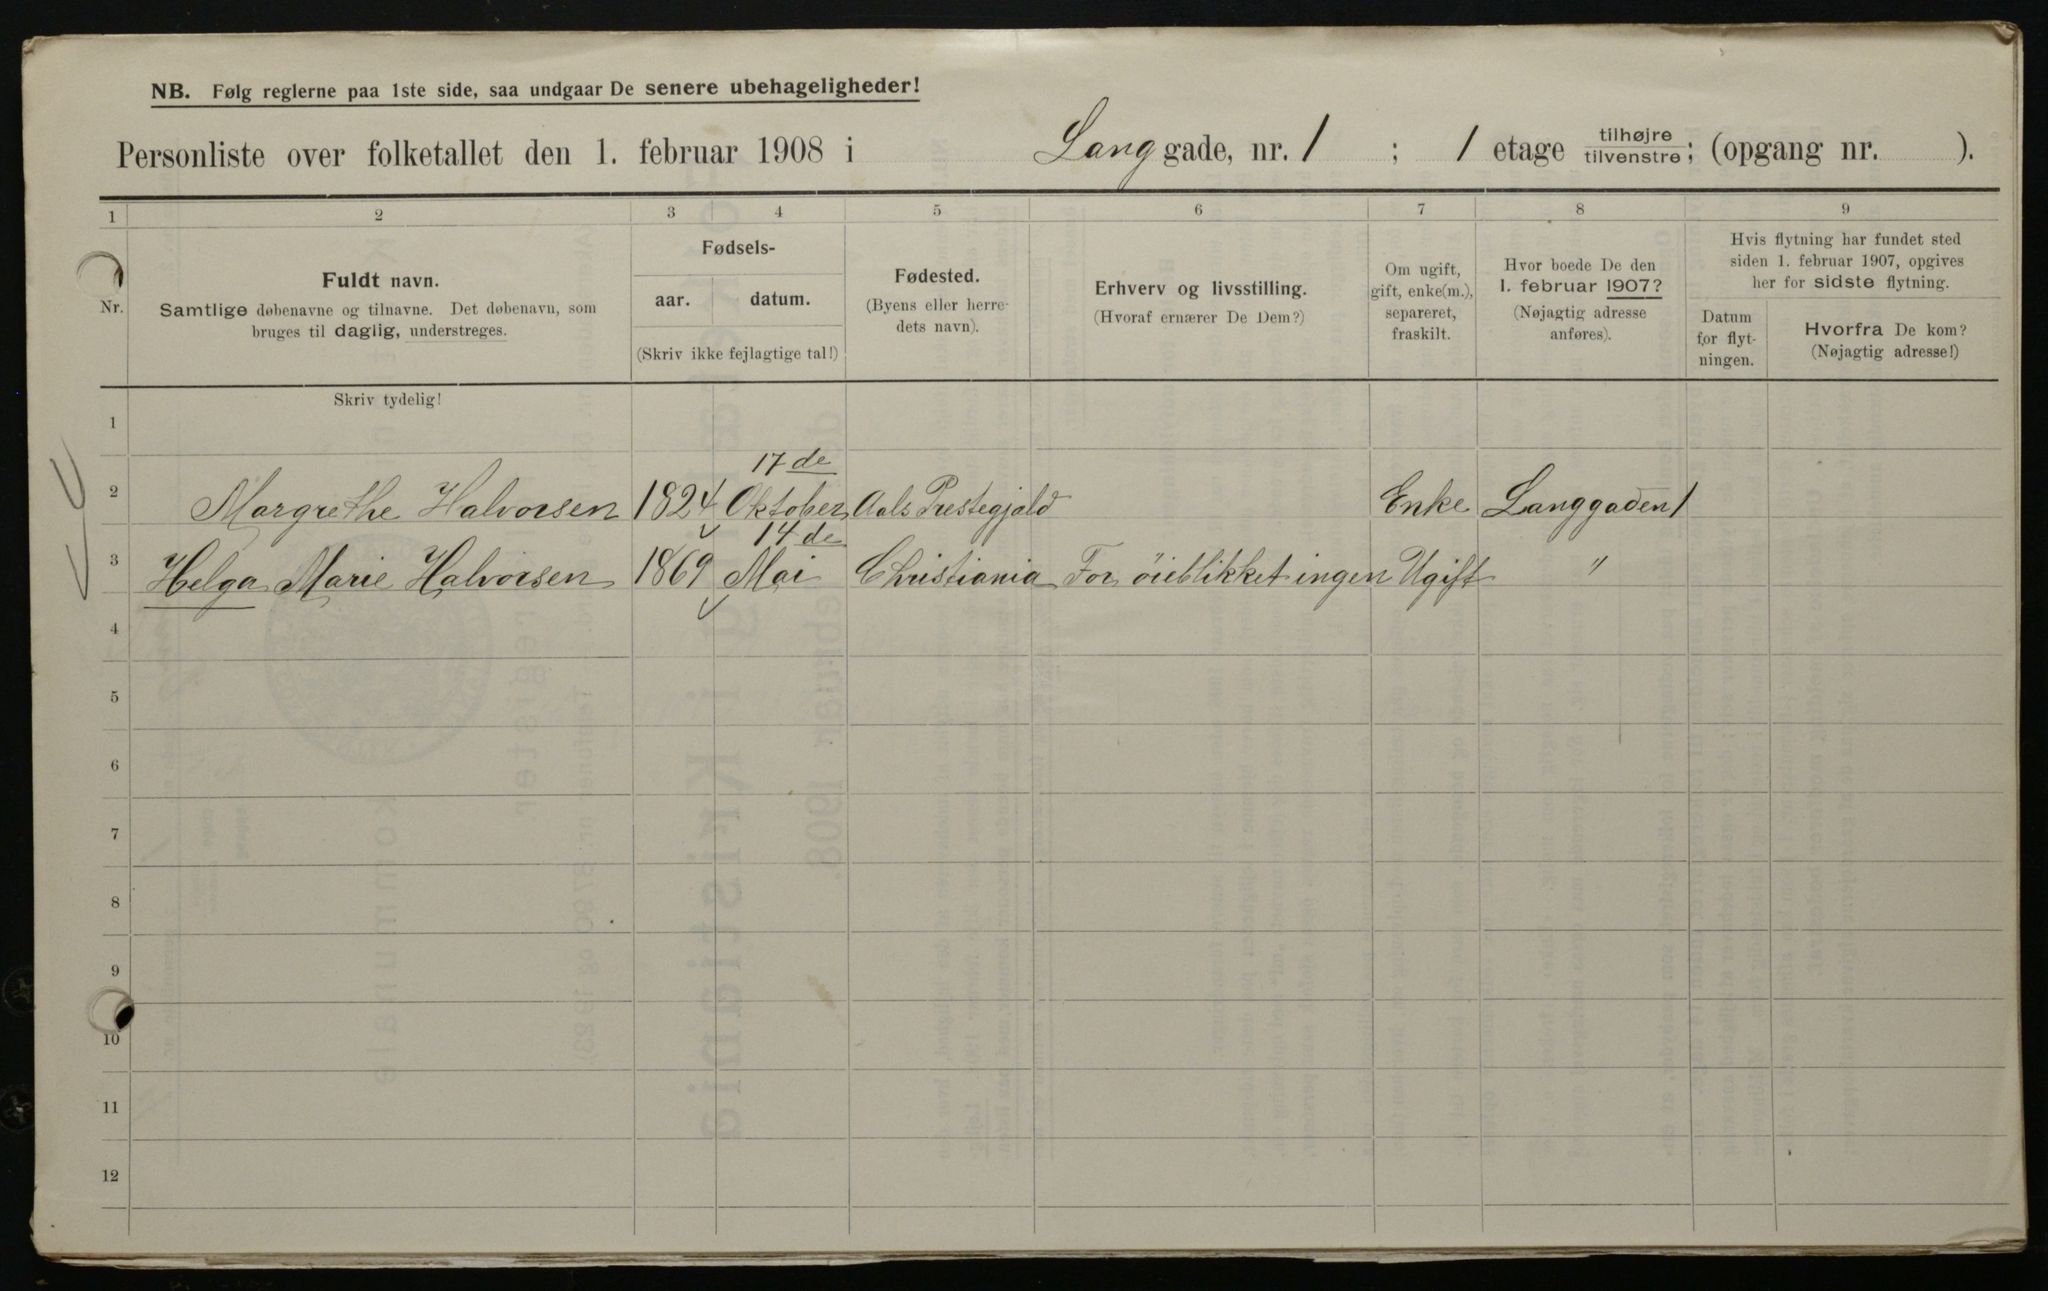 NB. Følg reglerne paa 1ste side, saa undgaar De senere ubehageligheder!
Personliste over folketallet den 1. februar 1908 i Lang gade, nr. 1 ; 1 etage tilhøjre/tilvenstre; (opgang nr. ).
1 2 3 4 5 6 7 8 9
Nr.
Fuldt navn.
Samtlige døbenavne og tilnavne. Det døbenavn, som
bruges til daglig, understreges.
Fødsels-
aar. datum.
(Skriv ikke fejlagtige tal!)
Fødested.
(Byens eller herre-
dets navn).
Erhverv og livsstilling.
(Hvoraf ernærer De Dem?)
Om ugift,
gift, enke(m.),
separeret,
fraskilt.
Hvor boede De den
1. februar 1907?
(Nøjagtig adresse
anføres).
Hvis flytning har fundet sted
siden 1. februar 1907, opgives
her for sidste flytning.
Datum
for flyt-
ningen.
Hvorfra De kom?
(Nøjagtig adresse!)
Skriv tydelig!
1
17 de
2 Margrethe Halvorsen 1824 Oktober Aals Prestegjeld Enke Langgaden 1
14 de
3 Helga Marie Halvorsen 1869 Mai Christiania For öieblikket ingen Ugift "
4
5
6
7
8
9
10
11
12